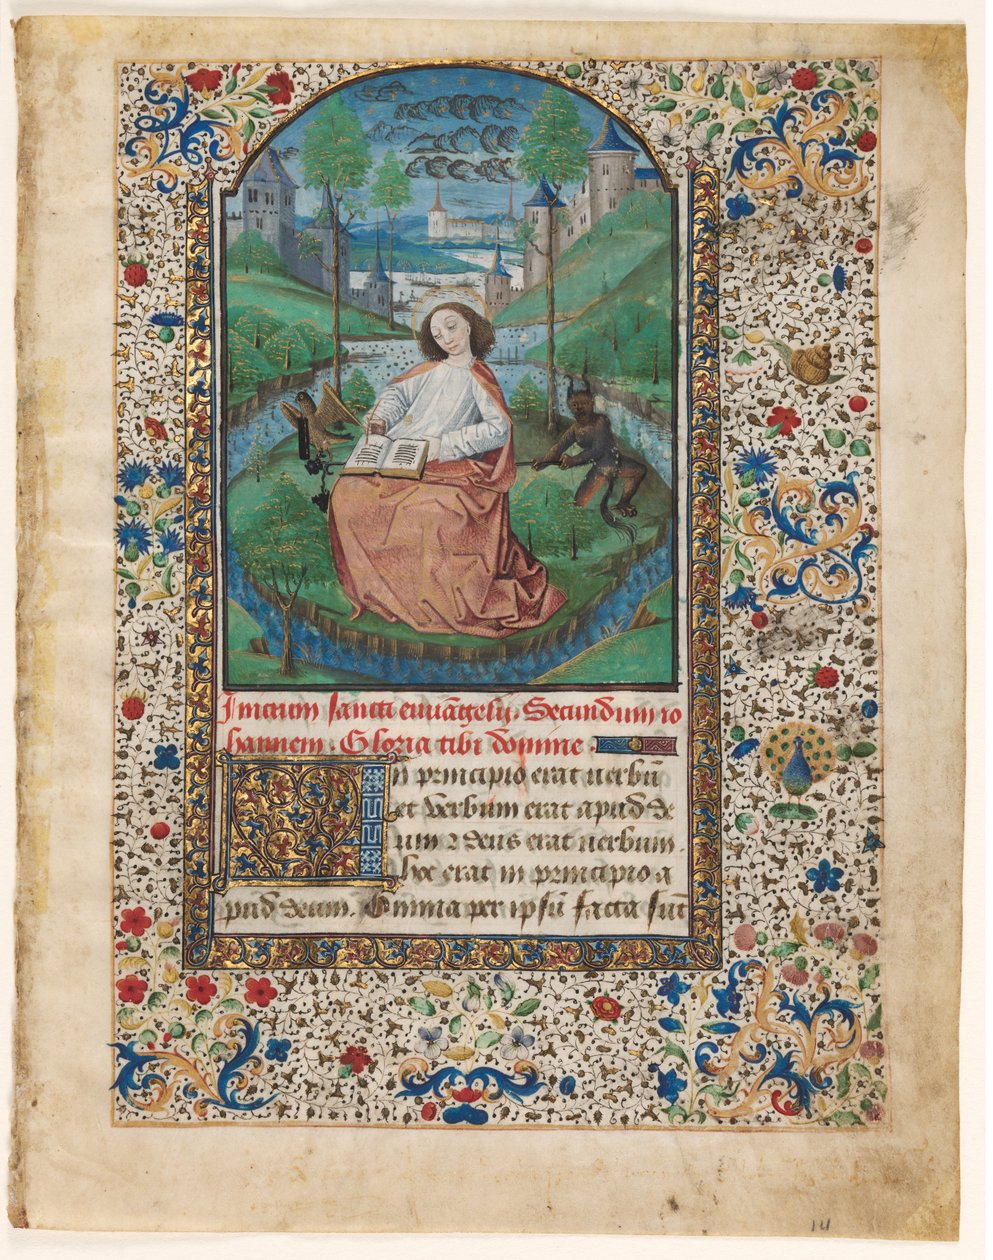 Inicium sancti euuãgelij. Secundum io
hannem. Gloria tibi domine
In principio erat uerbũ
et Verbum erat apud de
um ⁊ deus erat uerbum.
hoc erat in principio a
pud deum. Omnia per ipsũ facta sũt
14